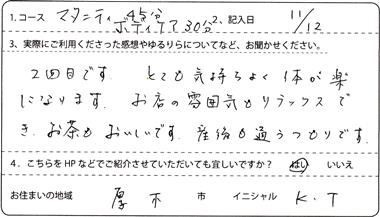 1. コース マタニティ 45分 ボディケア 30分 2、記入日 11/12
3、実際にご利用くださった感想やゆるりらについてなど、お聞かせください。
2回目です. とても気持ちよく体が楽
になります. お店の雰囲気もリラックスで
き、お茶もおいしいです. 産後も通うつもりです.
4．こちらをHPなどでご紹介させていただいても宜しいですか？ はい いいえ
お住まいの地域 厚木 市 イニシャル K．T